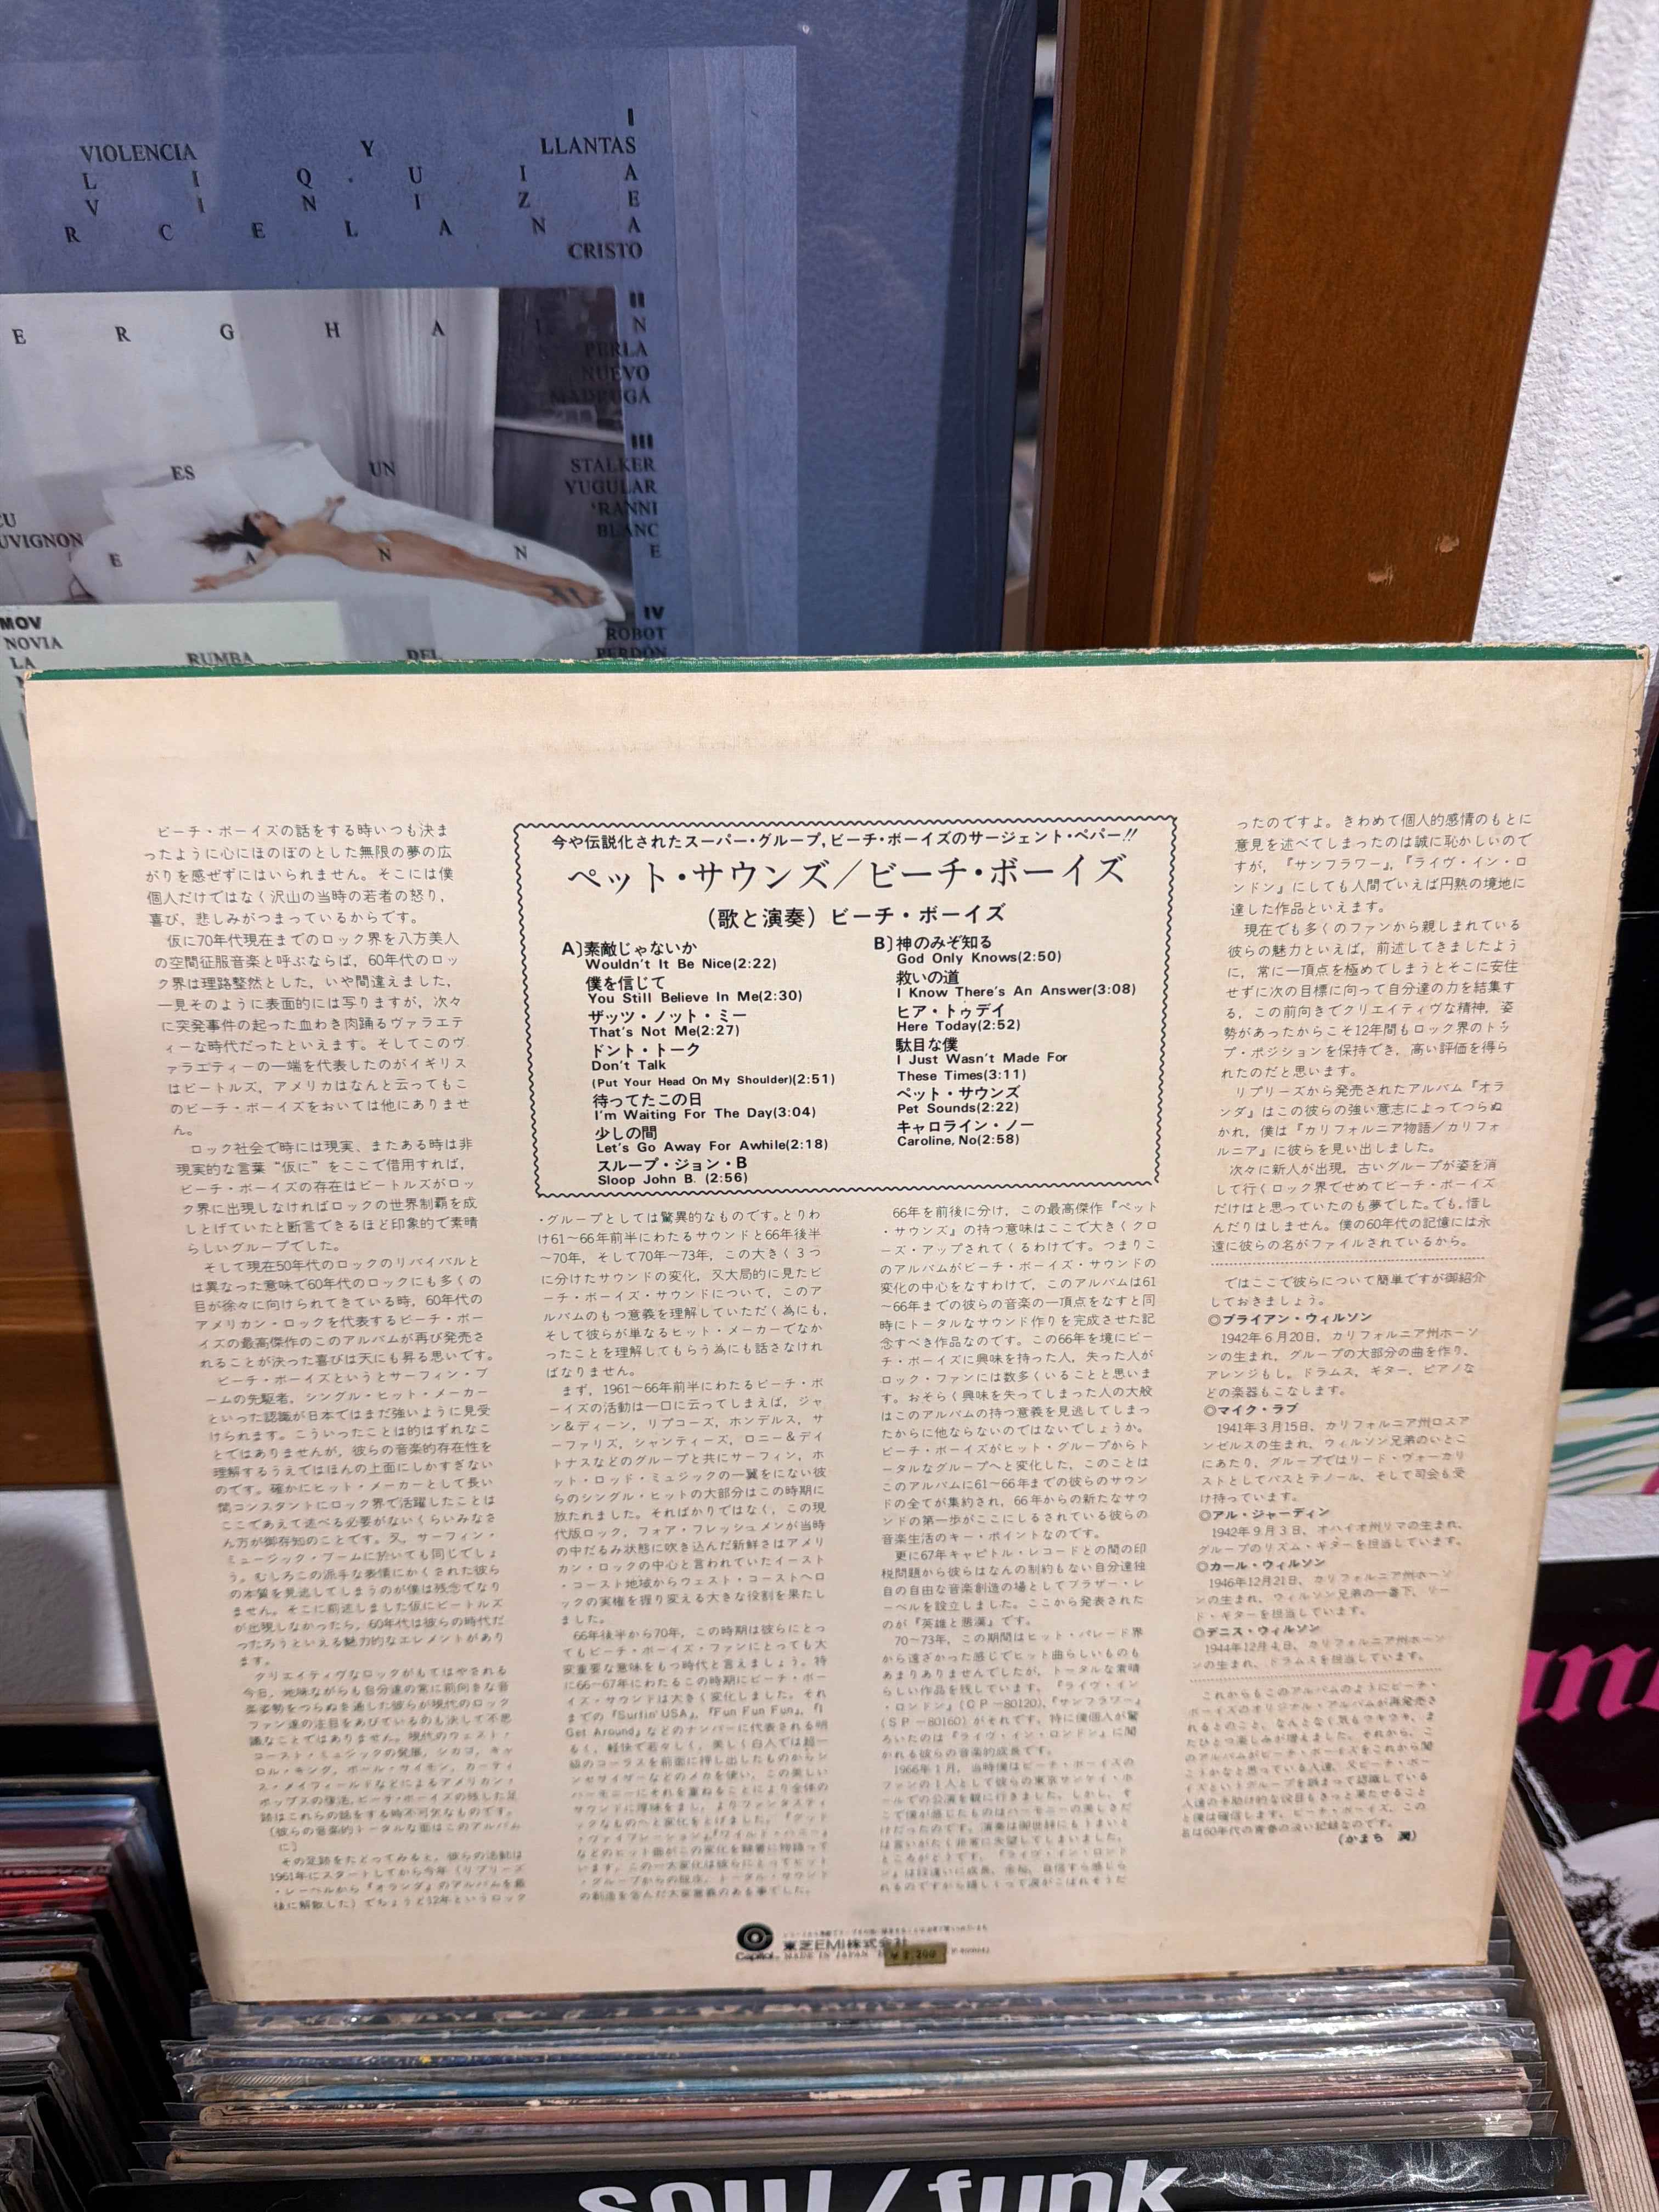 VIOLENCIA Y LLANTAS
CRISTO
PERLA
NUEVO
MADRUGÁ
III
STALKER
YUGULAR
ES UN
UVIGNON
IV
ROBOT
PERDÓN
MOV
NOVIA
LA
RUMBA DEL
今や伝説化されたスーパー・グループ,ビーチ・ボーイズのサージェント・ペパー!!
ペット・サウンズ/ビーチ・ボーイズ
(歌と演奏) ビーチ・ボーイズ
A]素敵じゃないか
Wouldn't It Be Nice(2:22)
僕を信じて
You Still Believe In Me(2:30)
ザッツ・ノット・ミー
That's Not Me(2:27)
ドント・トーク
Don't Talk
(Put Your Head On My Shoulder)(2:51)
待ってたこの日
I'm Waiting For The Day(3:04)
少しの間
Let's Go Away For Awhile(2:18)
スループ・ジョン・B
Sloop John B. (2:56)
B]神のみぞ知る
God Only Knows(2:50)
救いの道
I Know There's An Answer(3:08)
ヒア・トゥデイ
Here Today(2:52)
駄目な僕
I Just Wasn't Made For
These Times(3:11)
ペット・サウンズ
Pet Sounds(2:22)
キャロライン・ノー
Caroline, No(2:58)
ビーチ・ボーイズの話をする時いつも決ま
ったように心にほのぼのとした無限の夢の広
がりを感ぜずにはいられません。そこには僕
個人だけではなく沢山の当時の若者の怒り,
喜び, 悲しみがつまっているからです。
仮に70年代現在までのロック界を八方美人
の空間征服音楽と呼ぶならば, 60年代のロッ
ク界は理路整然とした, いや間違えました,
一見そのように表面的には写りますが, 次々
に突発事件の起った血わき肉踊るヴァラエテ
ィーな時代だったといえます。そしてこのヴ
ァラエティーの一端を代表したのがイギリス
はビートルズ, アメリカはなんと云ってもこ
のビーチ・ボーイズをおいては他にありませ
ん。
ロック社会で時には現実, またある時は非
現実的な言葉“仮に”をここで借用すれば,
ビーチ・ボーイズの存在はビートルズがロッ
ク界に出現しなければロックの世界制覇を成
しとげていたと断言できるほど印象的で素晴
らしいグループでした。
そして現在50年代のロックのリバイバルと
は異なった意味で60年代のロックにも多くの
目が徐々に向けられてきている時, 60年代の
アメリカン・ロックを代表するビーチ・ボー
イズの最高傑作のこのアルバムが再び発売さ
れることが決った喜びは天にも昇る思いです。
ビーチ・ボーイズというとサーフィン・ブ
ームの先駆者, シングル・ヒット・メーカー
といった認識が日本ではまだ強いように見受
けられます。こういったことは的はずれなこ
とではありませんが, 彼らの音楽的存在性を
理解するうえではほんの上面にしかすぎない
のです。確かにヒット・メーカーとして長い
間コンスタントにロック界で活躍したことは
ここであえて述べる必要がないくらいみなさ
ん方が御存知のことです。又, サーフィン・
ミュージック・ブームに於いても同じでしょ
う。むしろこの派手な表情にかくされた彼ら
の本質を見逃してしまうのが僕は残念でなり
ません。そこに前述しました仮にビートルズ
が出現しなかったら, 60年代は彼らの時代だ
ったろうといえる魅力的なエレメントがあり
ます。
クリエイティヴなロックがもてはやされる
今日, 地味ながらも自分達の常に前向きな音
楽姿勢をつらぬき通した彼らが現代のロック
ファン達の注目をあびているのも決して不思
議なことではありません。現代のウェスト・
コースト・ミュージックの発展, シカゴ, キャ
ロル・キング, ポール・サイモン, カーティ
ス・メイフィールドなどによるアメリカン・
ポップスの復活, ビーチ・ボーイズの残した足
跡はこれらの話をする時不可欠なものです。
(彼らの音楽的トータルな面はこのアルバム
に)
その足跡をたどってみると, 彼らの活動は
1961年にスタートしてから今年(リプリーズ
・レーベルから『オランダ』のアルバムを最
後に解散した)でちょうど12年というロック
・グループとしては驚異的なものです。とりわ
け61〜66年前半にわたるサウンドと66年後半
〜70年, そして70年〜73年, この大きく3つ
に分けたサウンドの変化, 又大局的に見たビ
ーチ・ボーイズ・サウンドについて, このア
ルバムのもつ意義を理解していただく為にも,
そして彼らが単なるヒット・メーカーでなか
ったことを理解してもらう為にも話さなけれ
ばなりません。
まず, 1961〜66年前半にわたるビーチ・ボ
ーイズの活動は一口に云ってしまえば, ジャ
ン&ディーン, リプコーズ, ホンデルス, サ
ーファリズ, シャンティーズ, ロニー&デイ
トナスなどのグループと共にサーフィン, ホ
ット・ロッド・ミュジックの一翼をにない彼
らのシングル・ヒットの大部分はこの時期に
放たれました。そればかりではなく, この現
代版ロック, フォア・フレッシュメンが当時
の中だるみ状態に吹き込んだ新鮮さはアメリ
カン・ロックの中心と言われていたイースト
・コースト地域からウェスト・コーストへロ
ックの実権を握り変える大きな役割を果たし
ました。
66年後半から70年, この時期は彼らにとっ
てもビーチ・ボーイズ・ファンにとっても大
変重要な意味をもつ時代と言えましょう。特
に66〜67年にわたるこの時期にビーチ・ボー
イズ・サウンドは大きく変化しました。それ
までの『Surfin' USA』,『Fun Fun Fun』,『I
Get Around』などのナンバーに代表される明
るく, 軽快で若々しく, 美しく白人では超一
級のコーラスを前面に押し出したものからシ
ンセサイザーなどのメカを使い, この美しい
ハーモニーにそれを重ねることにより全体の
サウンドに厚味をまし, よりファンタスティ
ックなものへと変化をとげました。『グッド
・ヴァイブレーション』,『ワイルド・ハニー』
などのヒット曲がこの変化を顕著に物語って
います。この一大変化は彼らにとってヒット
・グループからの脱皮, トータル・サウンド
の創造を含んだ大変意義のある事でした。
66年を前後に分け, この最高傑作『ペット
・サウンズ』の持つ意味はここで大きくクロ
ーズ・アップされてくるわけです。つまりこ
のアルバムがビーチ・ボーイズ・サウンドの
変化の中心をなすわけで, このアルバムは61
〜66年までの彼らの音楽の一頂点をなすと同
時にトータルなサウンド作りを完成させた記
念すべき作品なのです。この66年を境にビー
チ・ボーイズに興味を持った人, 失った人が
ロック・ファンには数多くいることと思いま
す。おそらく興味を失ってしまった人の大般
はこのアルバムの持つ意義を見逃してしまっ
たからに他ならないのではないでしょうか。
ビーチ・ボーイズがヒット・グループからト
ータルなグループへと変化した, このことは
このアルバムに61〜66年までの彼らのサウン
ドの全てが集約され, 66年からの新たなサウ
ンドの第一歩がここにしるされている彼らの
音楽生活のキー・ポイントなのです。
更に67年キャピトル・レコードとの間の印
税問題から彼らはなんの制約もない自分達独
自の自由な音楽創造の場としてブラザー・レ
ーベルを設立しました。ここから発表された
のが『英雄と悪漢』です。
70〜73年, この期間はヒット・パレード界
から遠ざかった感じでヒット曲らしいものも
あまりありませんでしたが, トータルな素晴
らしい作品を残しています。『ライヴ・イン
・ロンドン』(CP-80120),『サンフラワー』
(SP-80160)がそれです。特に僕個人が驚
ろいたのは『ライヴ・イン・ロンドン』に聞
かれる彼らの音楽的成長です。
1966年1月, 当時僕はビーチ・ボーイズの
ファンの1人として彼らの東京サンケイ・ホ
ールでの公演を観に行きました。しかし, そ
こで僕が感じたものはハーモニーの美しさだ
けだったのです。演奏は御世辞にもうまいと
は言いがたく非常に失望してしまいました。
ところがどうです。『ライヴ・イン・ロンド
ン』は段違いに成長, 余裕, 自信すら感じら
れるのですから嬉しくって涙がこぼれそうだ
ったのですよ。きわめて個人的感情のもとに
意見を述べてしまったのは誠に恥かしいので
すが, 『サンフラワー』,『ライヴ・イン・ロ
ンドン』にしても人間でいえば円熟の境地に
達した作品といえます。
現在でも多くのファンから親しまれている
彼らの魅力といえば, 前述してきましたよう
に, 常に一頂点を極めてしまうとそこに安住
せずに次の目標に向って自分達の力を結集す
る, この前向きでクリエイティヴな精神, 姿
勢があったからこそ12年間もロック界のトッ
プ・ポジションを保持でき, 高い評価を得ら
れたのだと思います。
リプリーズから発売されたアルバム『オラ
ンダ』はこの彼らの強い意志によってつらぬ
かれ, 僕は『カリフォルニア物語/カリフォ
ルニア』に彼らを見い出しました。
次々に新人が出現, 古いグループが姿を消
して行くロック界でせめてビーチ・ボーイズ
だけはと思っていたのも夢でした。でも, 惜し
んだりはしません。僕の60年代の記憶には永
遠に彼らの名がファイルされているから。
ではここで彼らについて簡単ですが御紹介
しておきましょう。
◎ブライアン・ウィルソン
1942年6月20日, カリフォルニア州ホーソ
ンの生まれ, グループの大部分の曲を作り,
アレンジもし, ドラムス, ギター, ピアノな
どの楽器もこなします。
◎マイク・ラブ
1941年3月15日, カリフォルニア州ロスア
ンゼルスの生まれ, ウィルソン兄弟のいとこ
にあたり, グループではリード・ヴォーカリ
ストとしてバスとテノール, そして司会も受
け持っています。
◎アル・ジャーディン
1942年9月3日, オハイオ州リマの生まれ,
グループのリズム・ギターを担当しています。
◎カール・ウィルソン
1946年12月21日, カリフォルニア州ホーソ
ンの生まれ, ウィルソン兄弟の一番下, リー
ド・ギターを担当しています。
◎デニス・ウィルソン
1944年12月4日, カリフォルニア州ホーソ
ンの生まれ, ドラムスを担当しています。
これからもこのアルバムのようにビーチ・
ボーイズのオリジナル・アルバムが再発売さ
れるとのこと, なんとなく気もウキウキ, ま
たひとつ楽しみが増えました。それから, こ
のアルバムがビーチ・ボーイズをこれから聞
こうかなと思っている人達, 又ビーチ・ボー
イズというグループを誤まって認識している
人達の手助け的な役目もきっと果たせること
と僕は確信します。ビーチ・ボーイズ, この
名は60年代の青春の淡い記録なのです。
(かまち 潤)
Capitol
東芝EMI株式会社
MADE IN JAPAN
¥2,200
soul/funk